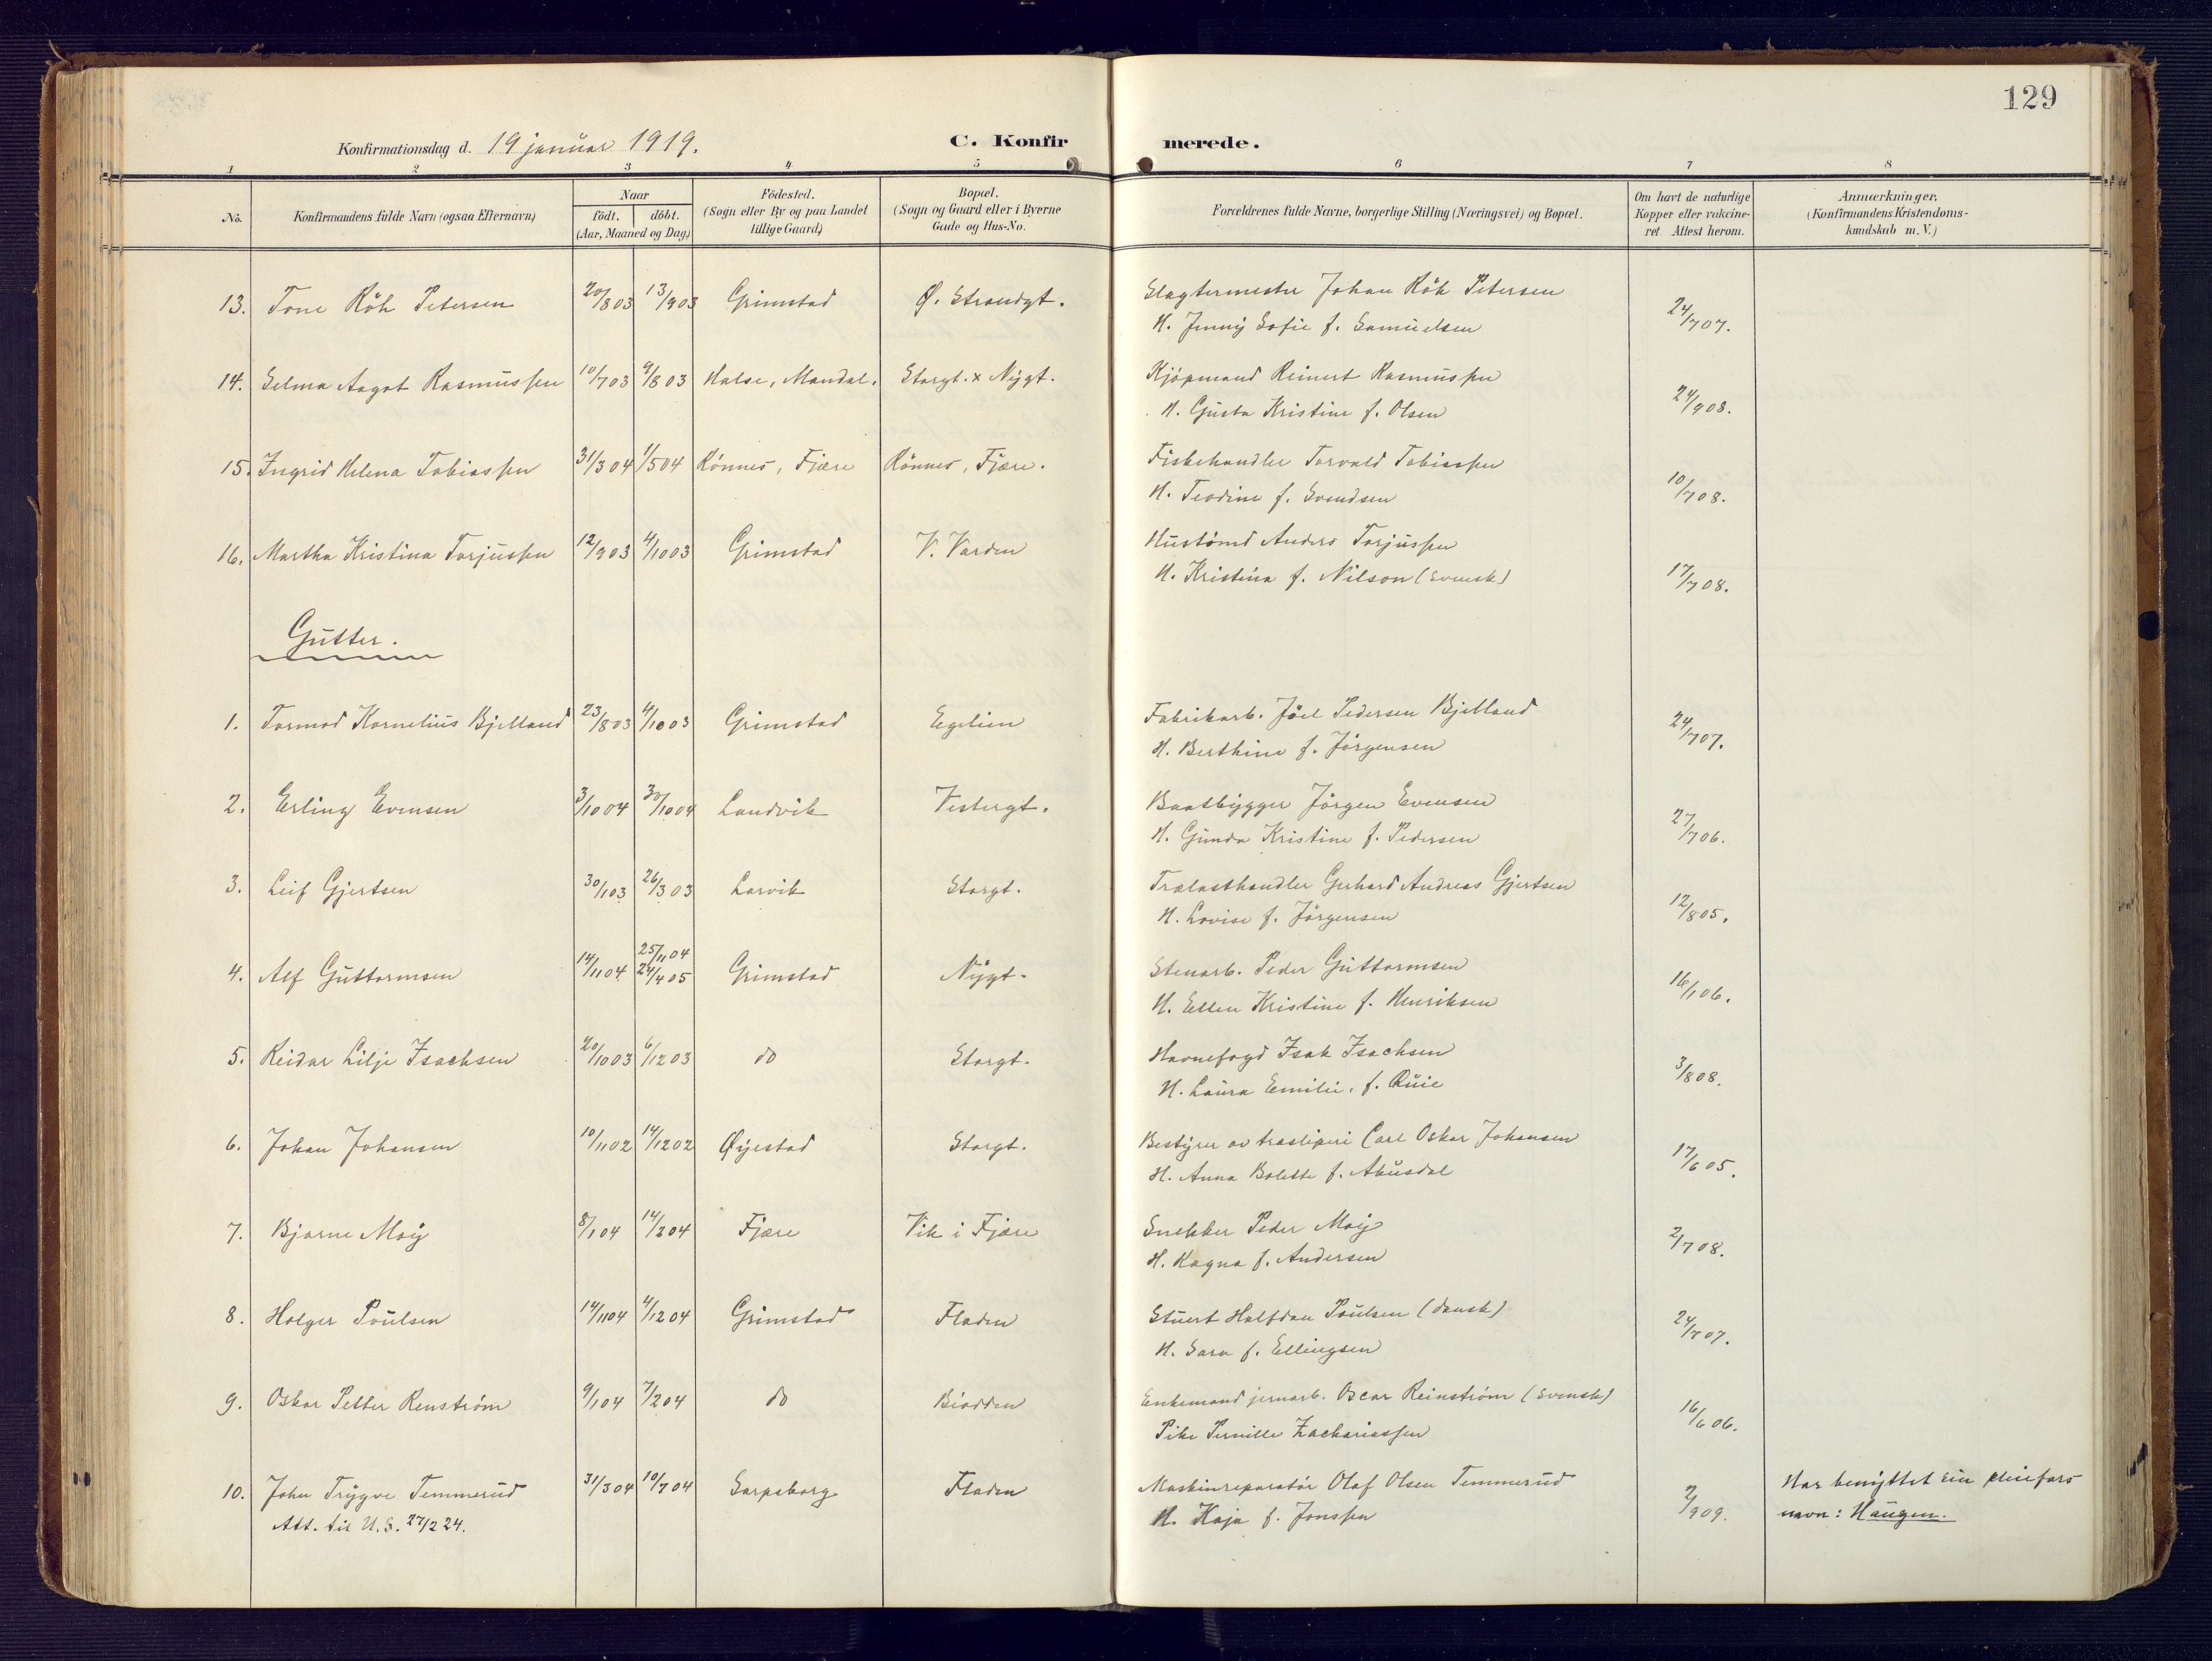 129
Konfirmationsdag d. 19 januar 1919. C. Konfirmerede.
1 2 3 4 5 6 7 8
No. Konfirmandens fulde Navn (ogsaa Efternavn) Naar født. døbt. (Aar, Maaned og Dag) Födested. (Sogn eller By og paa Landet tillige Gaard) Bopæl. (Sogn og Gaard eller i Byerne Gade og Hus-No. Forældrenes fulde Navne, borgerlige Stilling (Næringsvei) og Bopæl. Om havt de naturlige Kopper eller vakcineret. Attest herom. Anmærkninger. (Konfirmandens Kristendomskundskab m. V.)
13. Tone Røh Petersen 20/8 03 13/9 03 Grimstad Ø. Strandgt. Slagtermester Johan Røh Petersen 24/7 07.
H. Jenny Sofie f. Samuelsen
14. Selma Aagot Rasmussen 10/7 03 9/8 03 Halse, Mandal. Storgt. x Nygt. Kjøpmand Reinert Rasmussen 24/9 08.
H. Gusta Kristine f. Olsen
15. Ingrid Helena Tobiassen 31/3 04 1/5 04 Rønnes, Fjære Rønnes, Fjære. Fiskehandler Torvald Tobiassen 10/7 08.
H. Teodine f. Svendsen
16. Martha Kristina Torjussen 12/9 03 4/10 03 Grimstad V. Varden Hustømd Anders Torjussen 17/7 08.
H. Kristina f. Nilson (svensk)
Gutter.
1. Tormod Kornelius Bjelland 23/8 03 4/10 03 Grimstad Egelien Fabrikarb. Joel Pedersen Bjelland 24/7 07.
H. Berthine f. Jørgensen
2. Erling Evensen 3/10 04 30/10 04 Landvik Vestergt. Baatbygger Jørgen Evensen 27/7 06.
H. Gunda Kristine f. Pedersen
3. Leif Gjertsen 30/1 03 26/3 03 Larvik Storgt. Trælasthandler Gerhard Andreas Gjertsen 12/8 05.
H. Lovise f. Jørgensen
4. Alf Guttormsen 14/11 04 25/11 04 24/4 05 Grimstad Nygt. Stenarb. Peder Guttormsen 16/1 06.
H. Ellen Kristine f. Henriksen
5. Reidar Lilje Isachsen 20/10 03 6/12 03 do Storgt. Havnefogd Isak Isachsen 3/8 08.
H. Laura Emilie. f. Ruie
6. Johan Johansen 10/11 02 14/12 02 Øyestad Storgt. Bestyrer av træsliperi Carl Oskar Johansen 17/6 05.
H. Anna Bolette f. Akusdal
7. Bjarne Moy 8/1 04 14/2 04 Fjære Vik i Fjære Snekker Peder Moy 2/7 08.
H. Ragna f. Andersen
8. Holger Poulsen 14/11 04 4/12 04 Grimstad Fladen Stuert Halfdan Poulsen (dansk) 24/7 07.
H. Sara f. Ellingsen
9. Oskar Petter Renstrøm 9/1 04 7/2 04 do Biodden Enkemand jernarb. Oscar Reinstrøm (svensk) 16/6 06.
Pike Pernille Zachariassen
10. John Trygve Temmerud 31/3 04 10/7 04 Sarpsborg Fladen Maskinreparatør Olaf Olsen Temmerud 2/9 09. Har benyttet sin pleiefars
Att. til U.S. 27/2 24. H. Kaja f. Jonssen navn: Haugen.